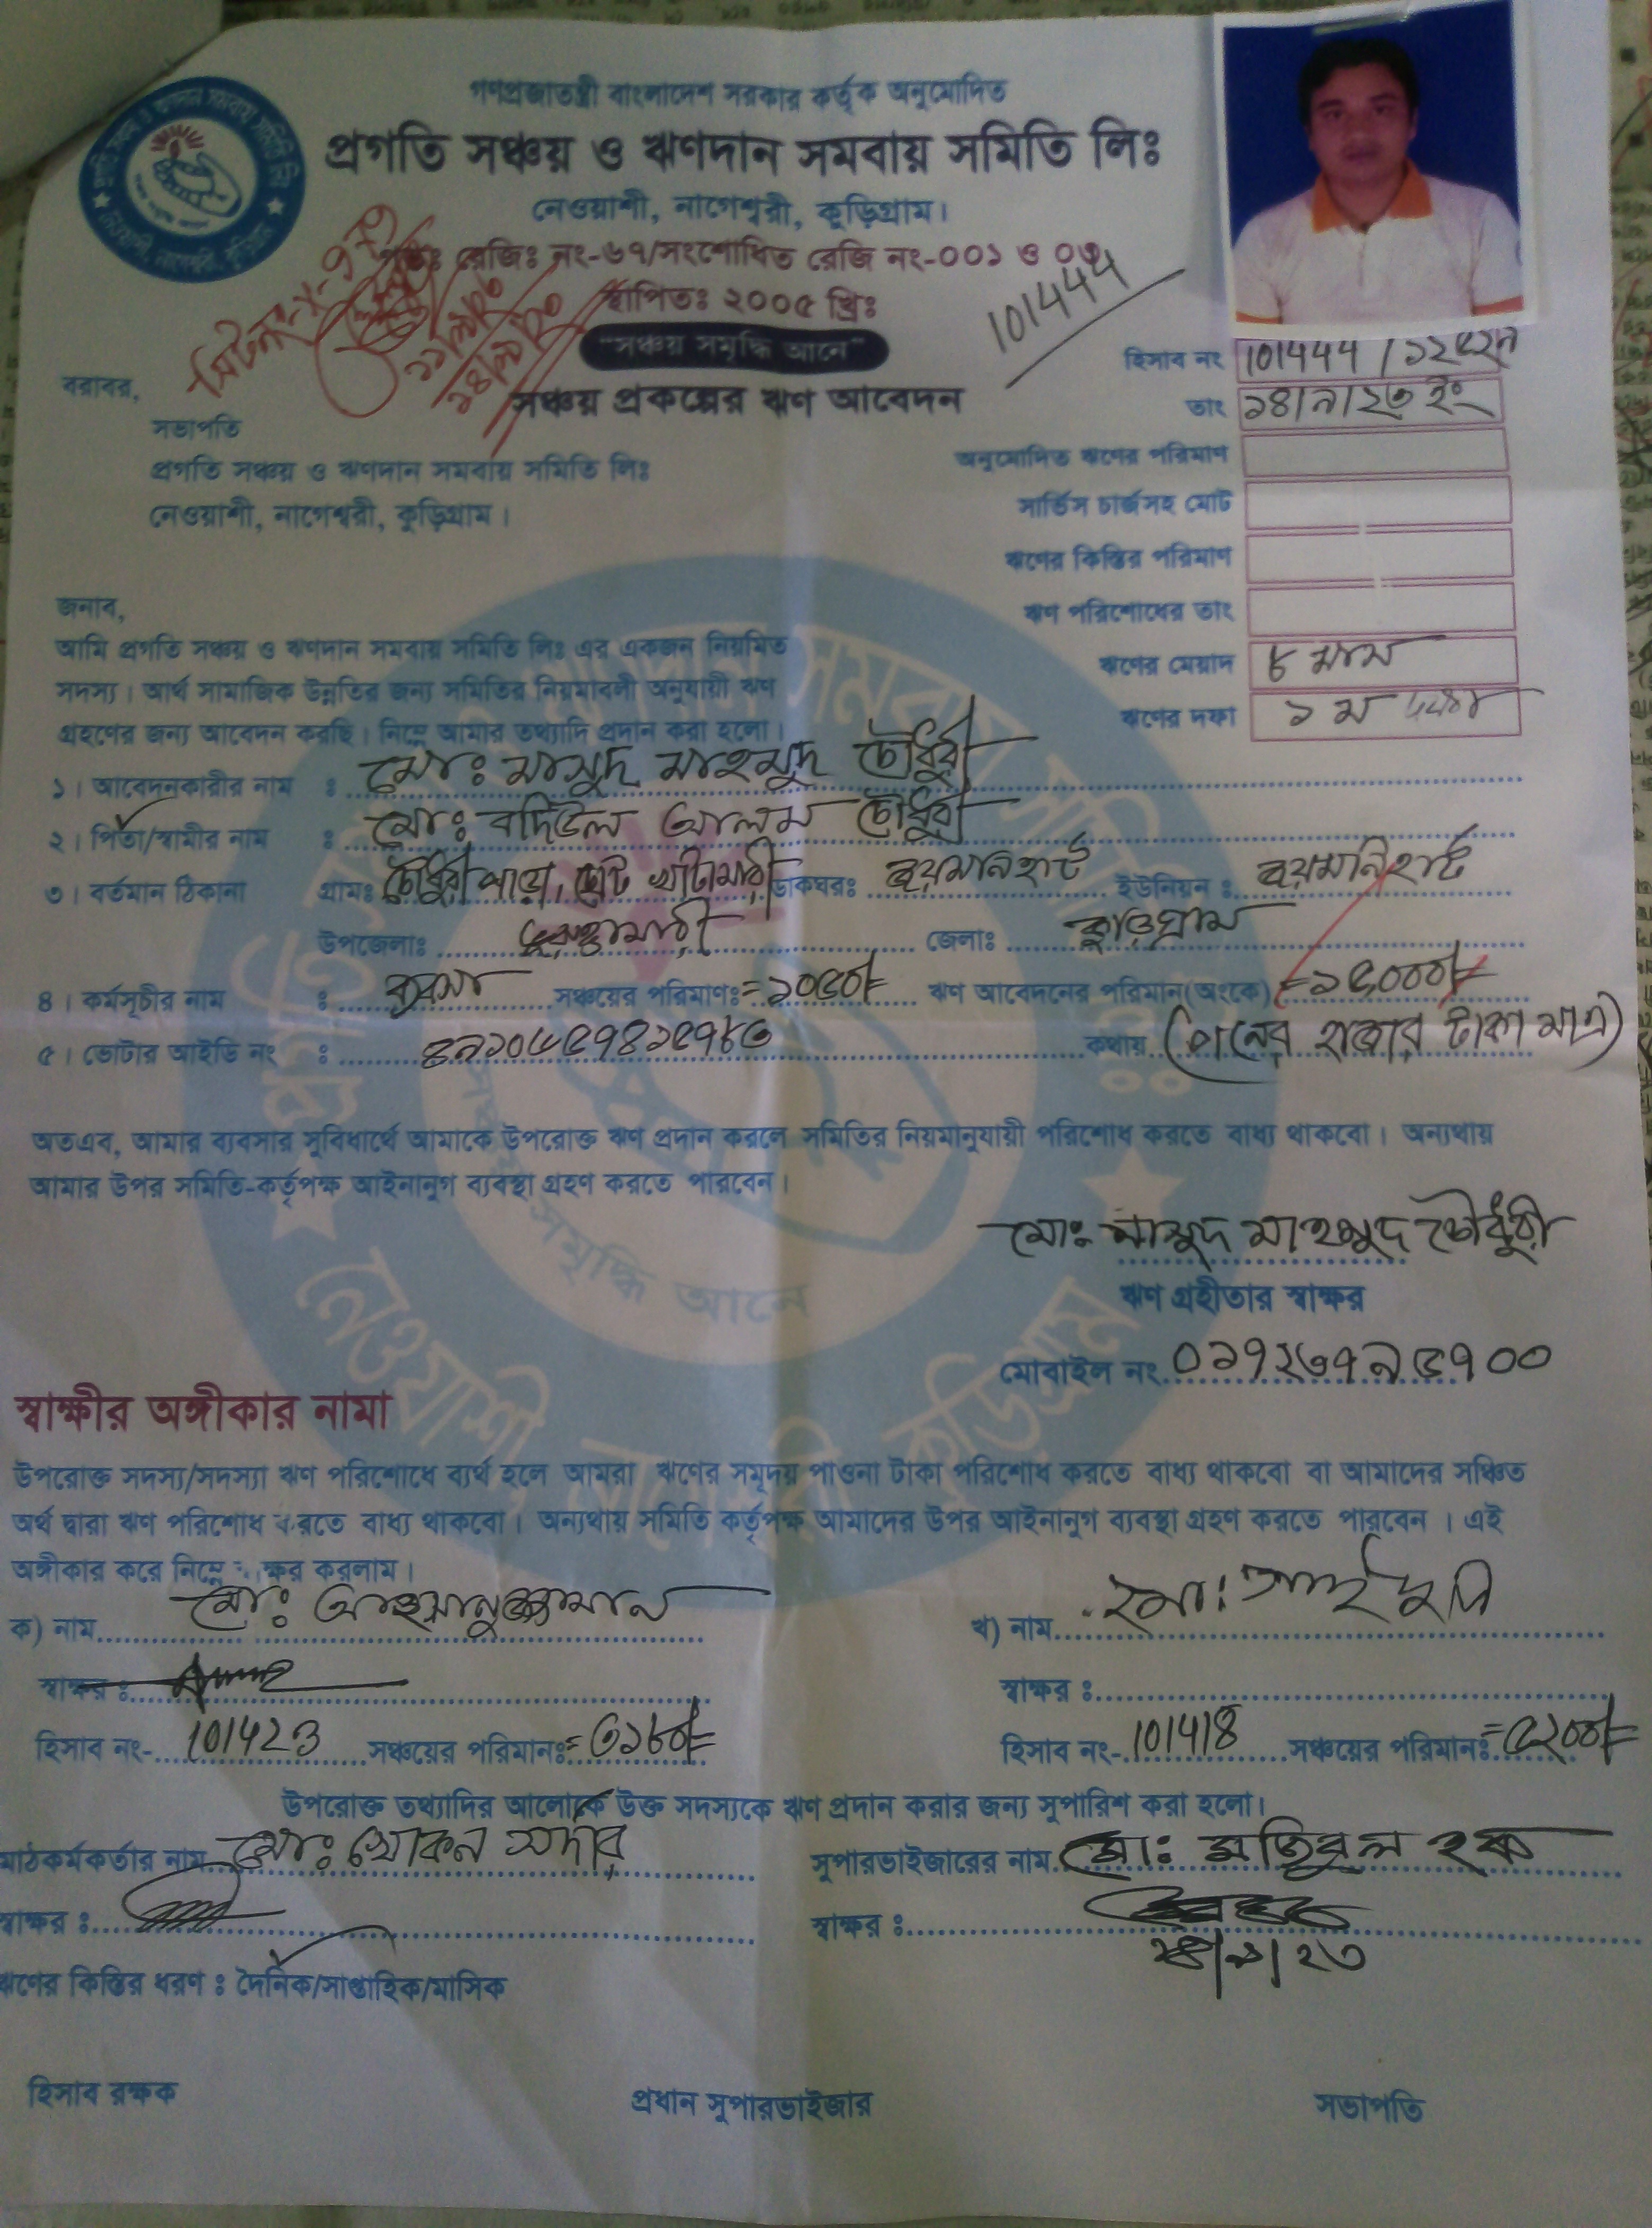 গণপ্রজাতন্ত্রী বাংলাদেশ সরকার কর্তৃক অনুমোদিত
প্রগতি সঞ্চয় ও ঋণদান সমবায় সমিতি লিঃ
নেওয়াশী, নাগেশ্বরী, কুড়িগ্রাম।
রেজিঃ নং-৬৭/সংশোধিত রেজি নং-০০১ ও ০৩
স্থাপিতঃ ২০০৫ খ্রিঃ
101444
"সঞ্চয় সমৃদ্ধি আনে"
হিসাব নং 101444 /
সঞ্চয় প্রকল্পের ঋণ আবেদন
তাং ১৪/৯/২৩ ইং
বরাবর,
সভাপতি
প্রগতি সঞ্চয় ও ঋণদান সমবায় সমিতি লিঃ
নেওয়াশী, নাগেশ্বরী, কুড়িগ্রাম।
অনুমোদিত ঋণের পরিমাণ
সার্ভিস চার্জসহ মোট
ঋণের কিস্তির পরিমাণ
ঋণ পরিশোধের তাং
ঋণের মেয়াদ ৮ মাস
ঋণের দফা ১ ম দফা
জনাব,
আমি প্রগতি সঞ্চয় ও ঋণদান সমবায় সমিতি লিঃ এর একজন নিয়মিত
সদস্য। আর্থ সামাজিক উন্নতির জন্য সমিতির নিয়মাবলী অনুযায়ী ঋণ
গ্রহণের জন্য আবেদন করছি। নিম্নে আমার তথ্যাদি প্রদান করা হলো।
১। আবেদনকারীর নাম : মোঃ মাসুদ মাহমুদ চৌধুরী
২। পিতা/স্বামীর নাম : মোঃ বদিউল আলম চৌধুরী
৩। বর্তমান ঠিকানা গ্রামঃ চৌধুরী পাড়া, ছোট খাটামারী ডাকঘরঃ জয়মনিরহাট ইউনিয়ন : জয়মনিরহাট
উপজেলাঃ ভুরুঙ্গামারী জেলাঃ কুড়িগ্রাম
৪। কর্মসূচীর নাম : ব্যবসা সঞ্চয়ের পরিমাণঃ = ১০৫০/= ঋণ আবেদনের পরিমান(অংকে) = ১৫,০০০/=
৫। ভোটার আইডি নং : কথায় (পনের হাজার টাকা মাত্র)
অতএব, আমার ব্যবসার সুবিধার্থে আমাকে উপরোক্ত ঋণ প্রদান করলে সমিতির নিয়মানুযায়ী পরিশোধ করতে বাধ্য থাকবো। অন্যথায়
আমার উপর সমিতি-কর্তৃপক্ষ আইনানুগ ব্যবস্থা গ্রহণ করতে পারবেন।
মোঃ মাসুদ মাহমুদ চৌধুরী
ঋণ গ্রহীতার স্বাক্ষর
মোবাইল নং ০১৭২৩৭৯৫৭০০
স্বাক্ষীর অঙ্গীকার নামা
উপরোক্ত সদস্য/সদস্যা ঋণ পরিশোধে ব্যর্থ হলে আমরা ঋণের সমূদয় পাওনা টাকা পরিশোধ করতে বাধ্য থাকবো বা আমাদের সঞ্চিত
অর্থ দ্বারা ঋণ পরিশোধ করতে বাধ্য থাকবো। অন্যথায় সমিতি কর্তৃপক্ষ আমাদের উপর আইনানুগ ব্যবস্থা গ্রহণ করতে পারবেন। এই
অঙ্গীকার করে নিম্নে স্বাক্ষর করলাম।
ক) নাম মোঃ আহসানুজ্জামান খ) নাম মোঃ
স্বাক্ষর : স্বাক্ষর :
হিসাব নং- 101423 সঞ্চয়ের পরিমানঃ = ৩১৮০/= হিসাব নং- 101418 সঞ্চয়ের পরিমানঃ = ৫২০০/=
উপরোক্ত তথ্যাদির আলোকে উক্ত সদস্যকে ঋণ প্রদান করার জন্য সুপারিশ করা হলো।
মাঠকর্মকর্তার নাম মোঃ খোকন সর্দার সুপারভাইজারের নাম মোঃ মজিবুল হক
স্বাক্ষর : স্বাক্ষর :
১৪/৯/২৩
ঋণের কিস্তির ধরণ : দৈনিক/সাপ্তাহিক/মাসিক
হিসাব রক্ষক প্রধান সুপারভাইজার সভাপতি